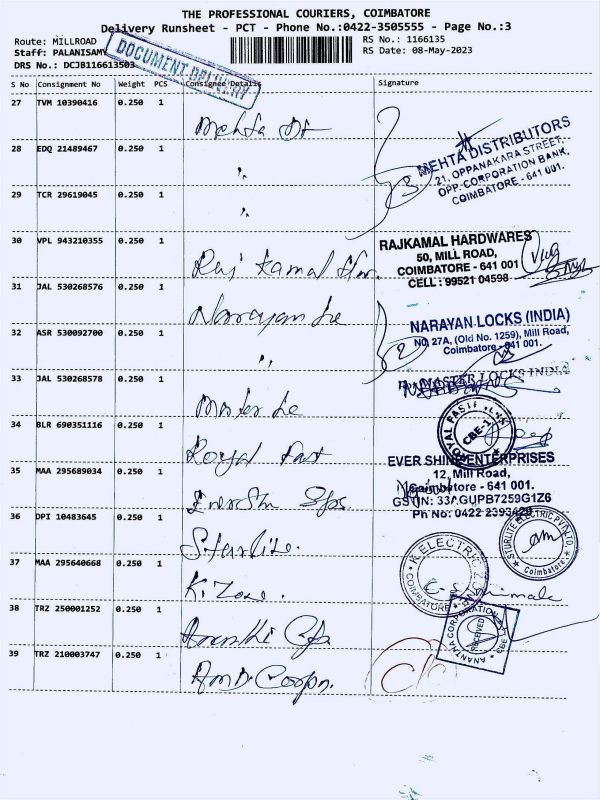 THE PROFESSIONAL COURIERS, COIMBATORE
Delivery Runsheet - PCT - Phone No.:0422-3505555 - Page No.:3
Route: MILLROAD
RS No.: 1166135
Staff: PALANISAMY
RS Date: 08-May-2023
DRS No.: DCJB116613503
DOCUMENT DELIVERY
S No Consignment No Weight PCS Consignee Details Signature
27 TVM 10390416 0.250 1
Mehta Dt
28 EDQ 21489467 0.250 1
"
MEHTA DISTRIBUTORS
21, OPPANAKARA STREET,
OPP. CORPORATION BANK,
COIMBATORE - 641 001.
3
29 TCR 29619045 0.250 1
"
30 VPL 943210355 0.250 1
Raj Kamal Hw.
RAJKAMAL HARDWARES
50, MILL ROAD,
COIMBATORE - 641 001
CELL : 99521 04598
31 JAL 530268576 0.250 1
Narayan Lc
NARAYAN LOCKS (INDIA)
NO, 27A, (Old No. 1259), Mill Road,
Coimbatore - 641 001.
2
32 ASR 530092700 0.250 1
"
33 JAL 530268578 0.250 1
Master Lc
MASTER LOCKS INDIA
34 BLR 690351116 0.250 1
Royal Fast
ROYAL FAST
CBE-1
35 MAA 295689034 0.250 1
EverShn Eps.
EVER SHINE ENTERPRISES
12, Mill Road,
Coimbatore - 641 001.
GSTIN: 33AGUPB7259G1Z6
Ph No: 0422 2393429
36 DPI 10483645 0.250 1
Sturlite.
STURLITE ELECTRIC PVT LTD
Coimbatore
37 MAA 295640668 0.250 1
K. Zone.
K. ELECTRIC
COIMBATORE
38 TRZ 250001252 0.250 1
ANANTHA CORPORATION
RECEIVED
CBE
39 TRZ 210003747 0.250 1
AMD. Coopn.
c/o